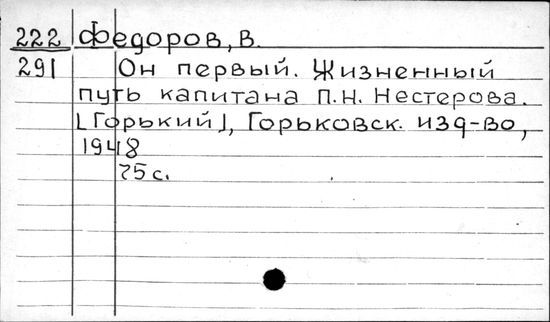 222 Федоров, В.
291 Он первый. Жизненный
путь капитана П.Н. Нестерова.
[Горький], Горьковск. изд-во,
1948
75 с.